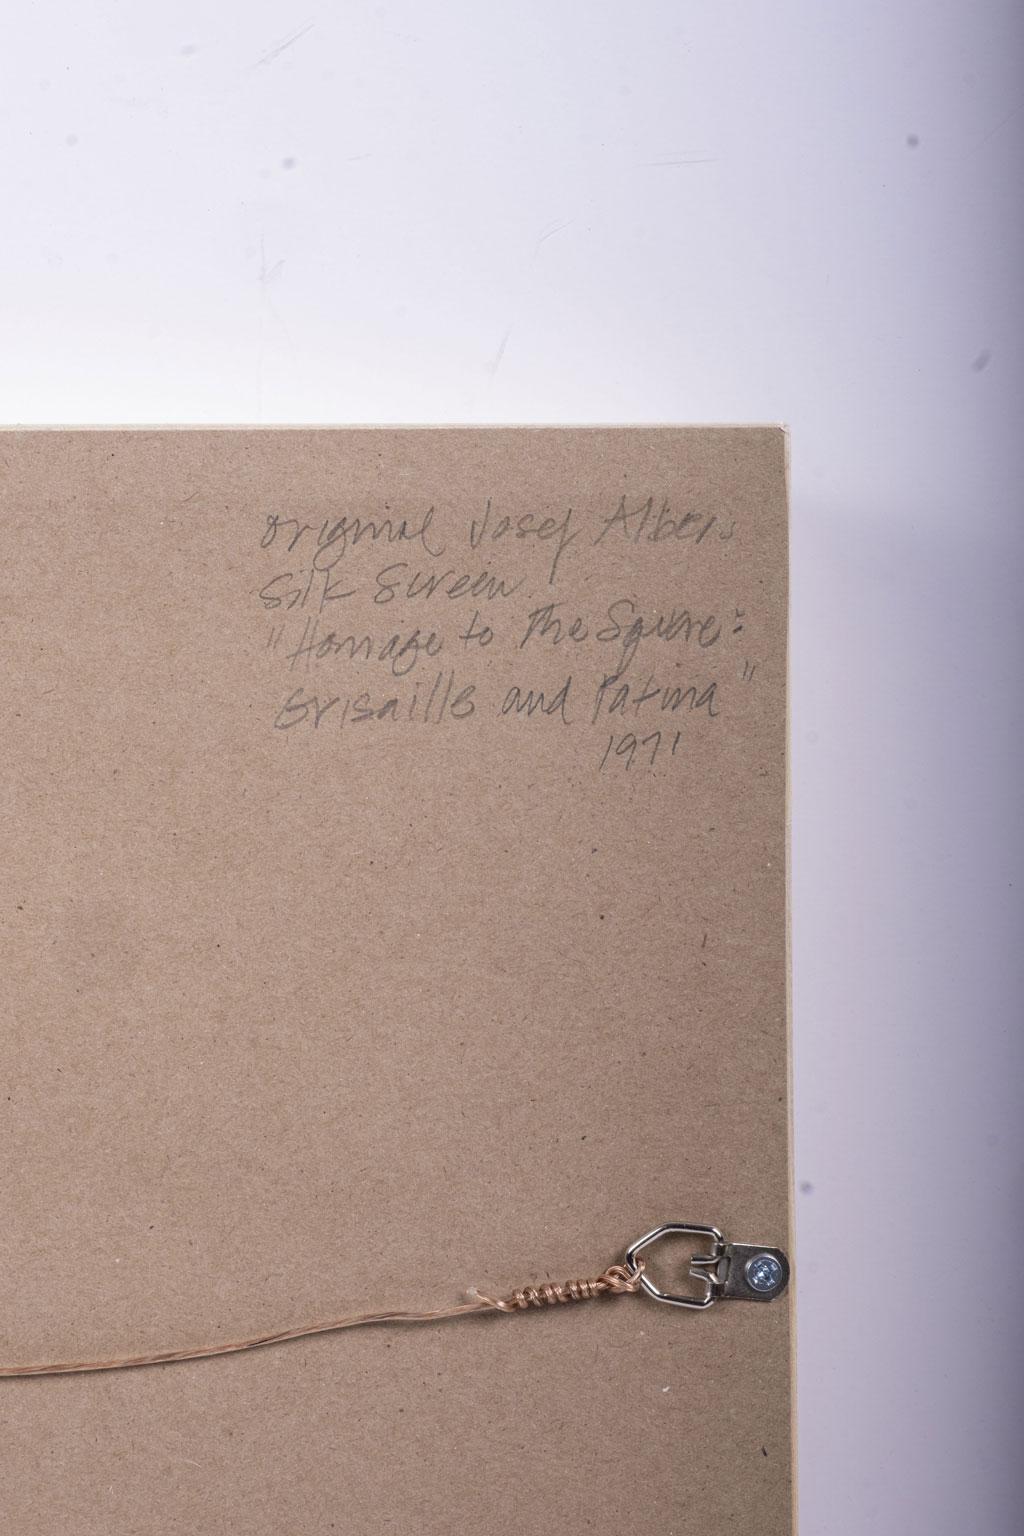 original Josef Albers
Silk Screen
"Homage to The Square:
Grisaille and Patina"
1971